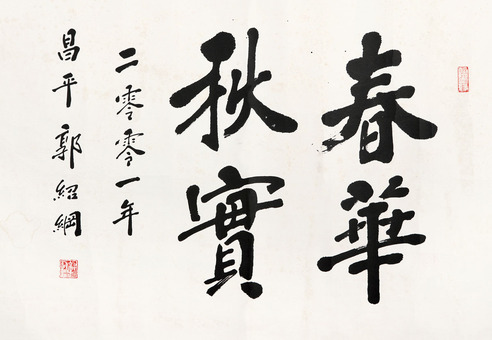 春華
秋實
二零零一年
昌平 郭紹綱